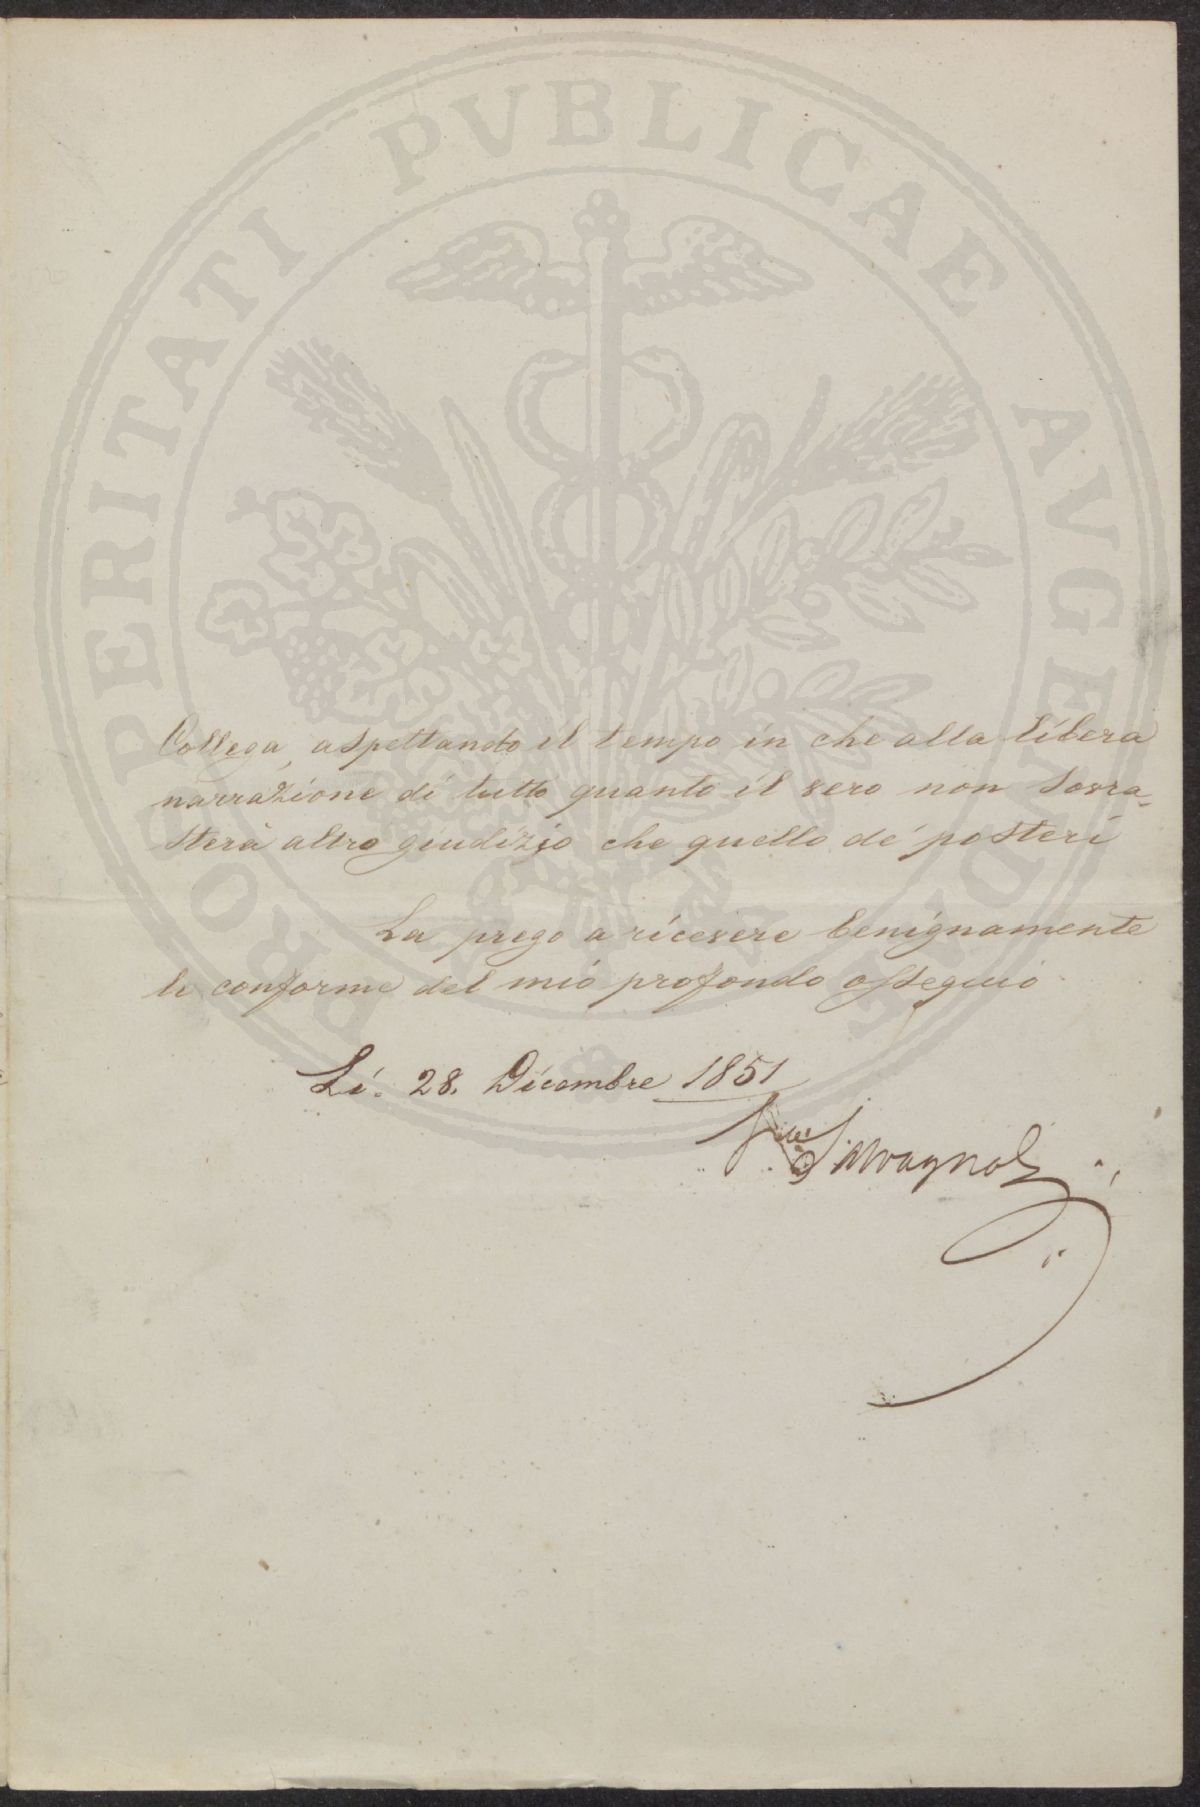 PROSPERITATI PUBLICAE AUGENDAE
Collega, aspettando il tempo in che alla libera
narrazione di tutto quanto il vero non sovra-
sterà altro giudizio che quello de' posteri
La prego a ricevere benignamente
le conforme del mio profondo ossequio
Li. 28. Dicembre 1851
Salvagnoli